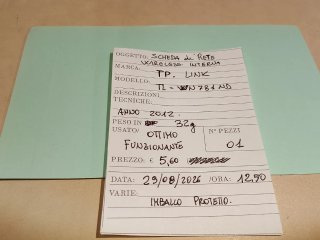 OGGETTO: SCHEDA di RETE
WIRELESS INTERNA
MARCA: TP. LINK
MODELLO: TL-WN781ND
DESCRIZIONI
TECNICHE:
ANNO 2012.
PESO IN 32g
USATO/ OTTIMO
FUNZIONANTE
N° PEZZI
01
PREZZO: € 5,60
DATA: 29/08/2026 /ORA: 12,90
VARIE:
IMBALLO PROTETTO.